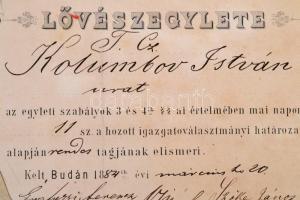 LŐVÉSZEGYLETE
T. Cz.
Kolumbov István
urat
az egyleti szabályok 3 és 4 §§ ai értelmében mai napon
11 sz. a hozott igazgatóválasztmányi határozat
alapján rendes tagjának elismeri.
Kelt, Budán 1884 évi március hó 20
János